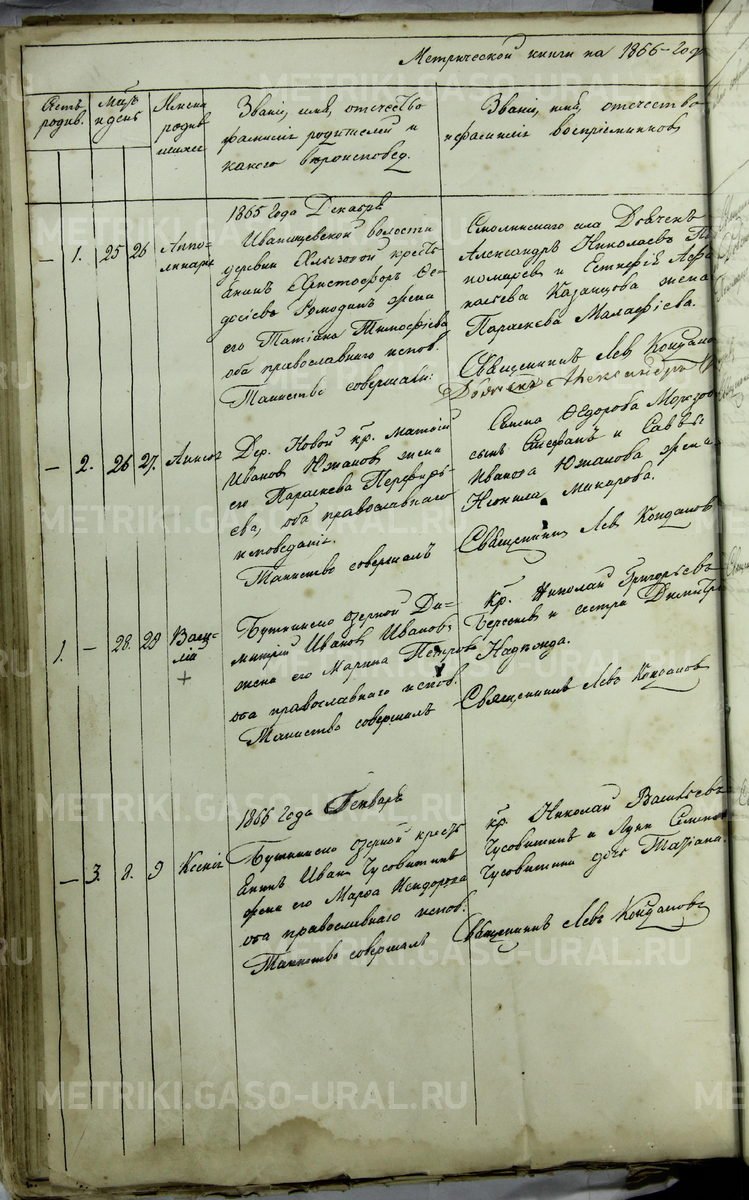 Метрической книги на 1866-Годъ
Счетъ
родив.
Мѣся.
и день
Имена
родив
шихся
Званіе, имя, отечество
фамиліи родителей и
какого вѣроисповед.
Званіе, имя, отечество
и фамиліи воспріемников
1865 Года Декабрь
— 1. 25 26 Аппо-
линарія
Иванищевской волости
деревни Хлызовой кресть
янинъ Христофоръ Ѳе-
досіевъ Ромодинъ жена
его Татіана Тимофіева
оба православнаго испов.
Таинство совершали:
Смолинскаго села Дьячекъ
Александръ Николаевъ По
номаревъ и Афа
насьева Казанцова жена
Параскева Малафіева.
Священникъ Левъ Кондаков
Дьячекъ Александръ
— 2. 26 27. Анисія
Дер. Новой кр. Матѳій
Ивановъ Южаковъ жена
его Параскева Перфирь-
ева, оба православнаго
исповеданія.
Таинство совершалъ
Ѳедорова
сынъ Стефанъ и Саввы
Иванова Южакова жена
Неонила Макарова.
Священникъ Левъ Кондаковъ
1. — 28. 29 Васи-
лій
+
Буткинско озерной Ди-
митрій Ивановъ Ивановъ,
жена его Марина Петрова
оба православнаго испов.
Таинство совершилъ
кр. Николай Григорьевъ
Берсеневъ и сестра Димитрія
Надежда.
Священникъ Левъ Кондаковъ
1866 Года Генварь
— 3. 8. 9 Ксенія
Буткинско озерной кресть
янинъ Иванъ Чусовитинъ
жена его Марѳа Исидорова
оба православнаго испов.
Таинство совершалъ
кр. Николай Васильевъ
Чусовитинъ и Луки Семенова
Чусовитина дочь Татіана.
Священникъ Левъ Кондаковъ
METRIKI.GASO-URAL.RU